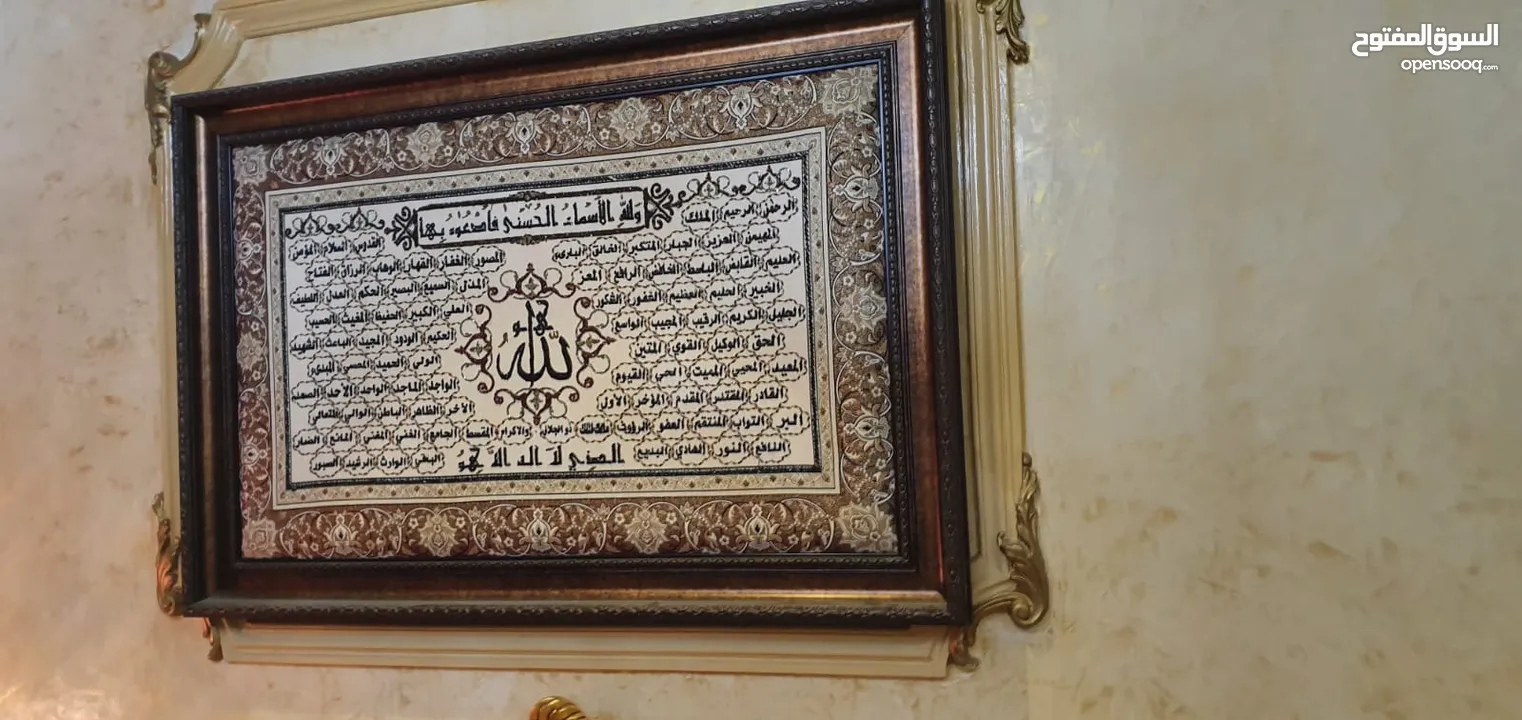 السوق المفتوح
opensooq.com
ولله الأسماء الحسنى فادعوه بها
الرحمن الرحيم الملك القدوس السلام المؤمن
المهيمن العزيز الجبار المتكبر الخالق البارىء المصور الغفار القهار الوهاب الرزاق الفتاح
العليم القابض الباسط الخافض الرافع المعز المذل السميع البصير الحكم العدل اللطيف
الخبير الحليم العظيم الغفور الشكور العلي الكبير الحفيظ المغيث الحسيب
الجليل الكريم الرقيب المجيب الواسع الحكيم الودود المجيد الباعث الشهيد
الحق الوكيل القوي المتين الولي الحميد المحصي المبدىء
المعيد المحيي المميت الحي القيوم الواجد الماجد الواحد الاحد الصمد
القادر المقتدر المقدم المؤخر الاول الآخر الظاهر الباطن الوالي المتعالي
البر التواب المنتقم العفو الرؤوف مالك الملك ذو الجلال والاكرام المقسط الجامع الغني المغني المانع الضار
النافع النور الهادي البديع الباقي الوارث الرشيد الصبور
الله
الذي لا اله الا هو